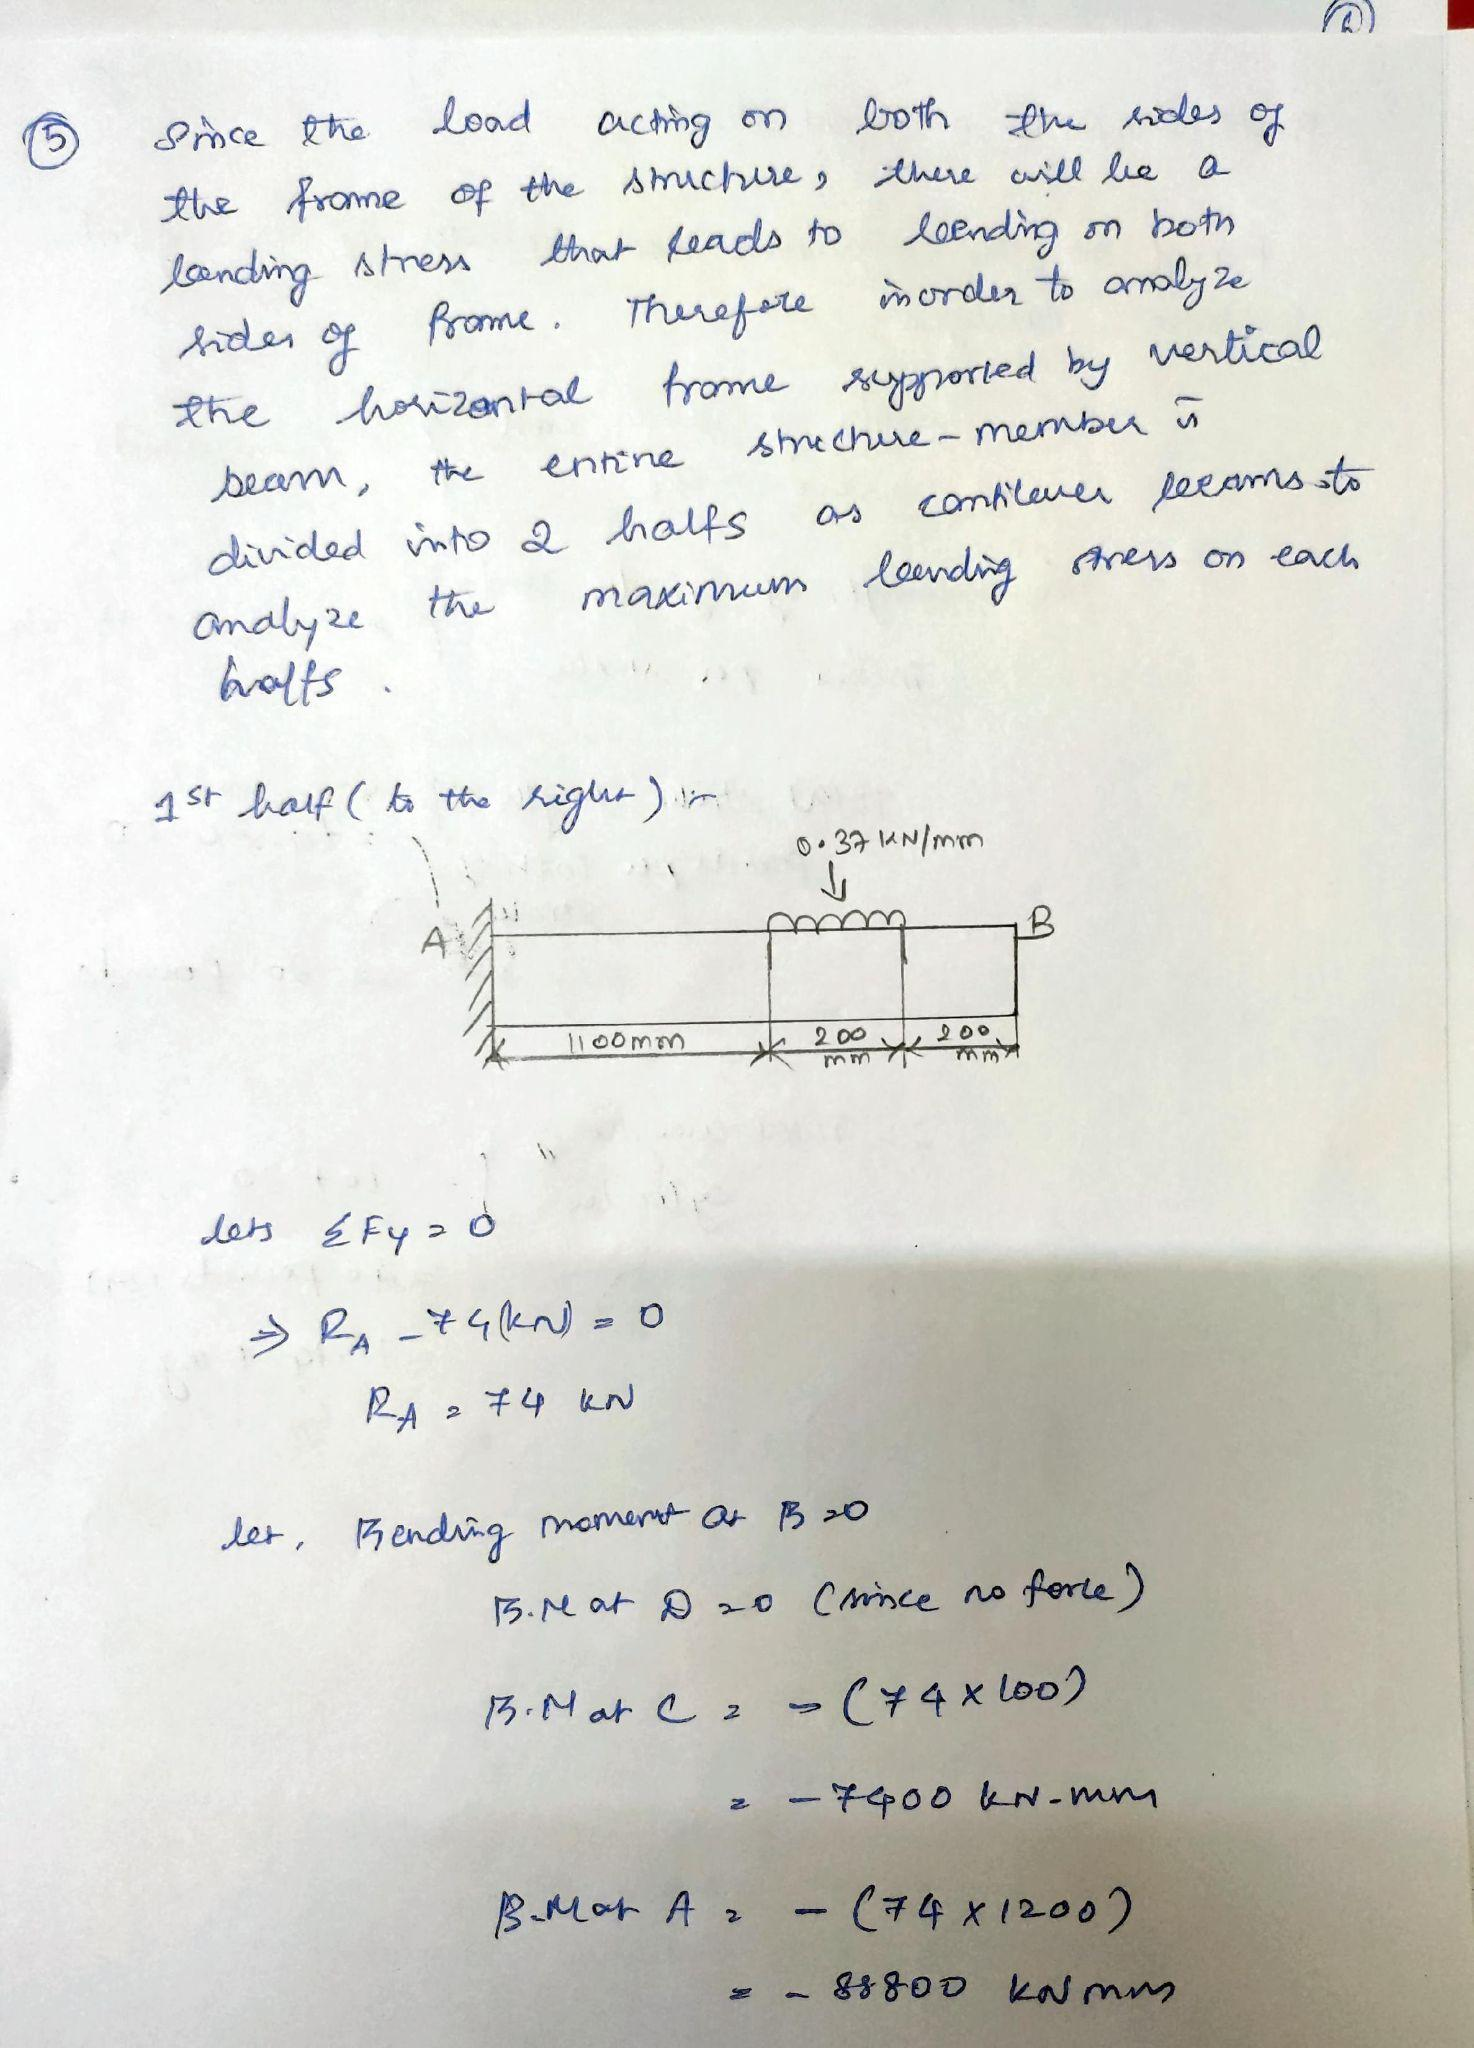 5 Since the load acting on both the sides of
the frame of the structure, there will be a
bending stress that leads to bending on both
sides of frame. Therefore inorder to analyze
the horizontal frame supported by vertical
beam, the entire structure-member is
divided into 2 halfs as cantilever beams to
analyze the maximum bending stress on each
halfs.
1st half (to the right) :-
0.37 KN/mm
A
B
1100mm
200 mm
200 mm
lets ΣFy = 0
⇒ RA - 74(kN) = 0
RA = 74 kN
let, Bending moment at B = 0
B.M at D = 0 (since no force)
B.M at C = - (74 x 100)
= - 7400 kN-mm
B.M at A = - (74 x 1200)
= - 88800 kN mm